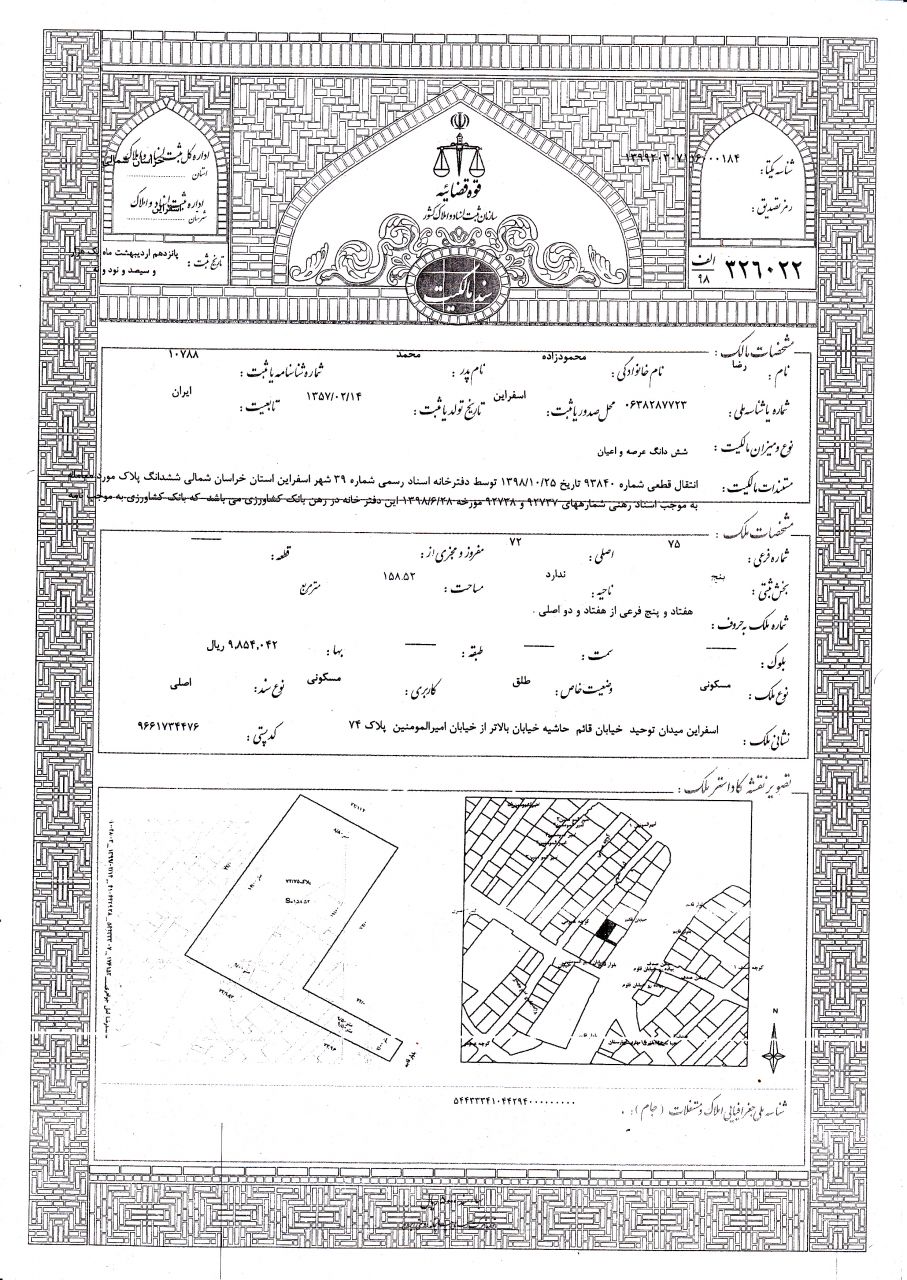 قوه قضائیه
سازمان ثبت اسناد و املاک کشور
سند مالکیت
شناسه یکتا :
رمز تصدیق :
۳۲۶۰۲۲ الف ۹۸
اداره کل ثبت اسناد و املاک
استان خراسان شمالی
اداره ثبت اسناد و املاک
شهرستان اسفراین
تاریخ ثبت : پانزدهم اردیبهشت ماه یک هزار
و سیصد و نود و نه
مشخصات مالک :
نام : رضا نام خانوادگی : محمودزاده نام پدر : محمد شماره شناسنامه یا ثبت : ۱۰۷۸۸
شماره یا شناسه ملی : ۰۶۳۸۲۸۷۷۲۳ محل صدور یا ثبت : اسفراین تاریخ تولد یا ثبت : ۱۳۵۷/۰۲/۱۴ تابعیت : ایران
نوع و میزان مالکیت : شش دانگ عرصه و اعیان
مستندات مالکیت : انتقال قطعی شماره ۹۳۸۴۰ تاریخ ۱۳۹۸/۱۰/۲۵ توسط دفترخانه اسناد رسمی شماره ۳۹ شهر اسفراین استان خراسان شمالی ششدانگ پلاک مورد معامله
به موجب اسناد رهنی شمارههای ۹۲۷۳۷ و ۹۲۷۳۸ مورخه ۱۳۹۸/۶/۲۸ این دفتر خانه در رهن بانک کشاورزی می باشد که بانک کشاورزی به موجب نامه
مشخصات ملک :
شماره فرعی : ۷۵ اصلی : ۷۲ مفروز و مجزی از : قطعه :
بخش ثبتی : پنج ناحیه : ندارد مساحت : ۱۵۸.۵۲ متر مربع
شماره ملک به حروف : هفتاد و پنج فرعی از هفتاد و دو اصلی .
بلوک : سمت : طبقه : بها : ۹,۸۵۴,۰۴۲ ریال
نوع ملک : مسکونی وضعیت خاص : طلق کاربری : مسکونی نوع سند : اصلی
نشانی ملک : اسفراین میدان توحید خیابان قائم حاشیه خیابان بالاتر از خیابان امیرالمومنین پلاک ۷۴ کد پستی : ۹۶۶۱۷۳۴۴۷۶
تصویر نقشه کاداستر ملک :
N
شناسه ملی جغرافیایی املاک و مستغلات (جام) : ۵۴۴۳۳۳۴۱۰۴۴۲۹۴۰۰۰۰۰۰۰۰۰